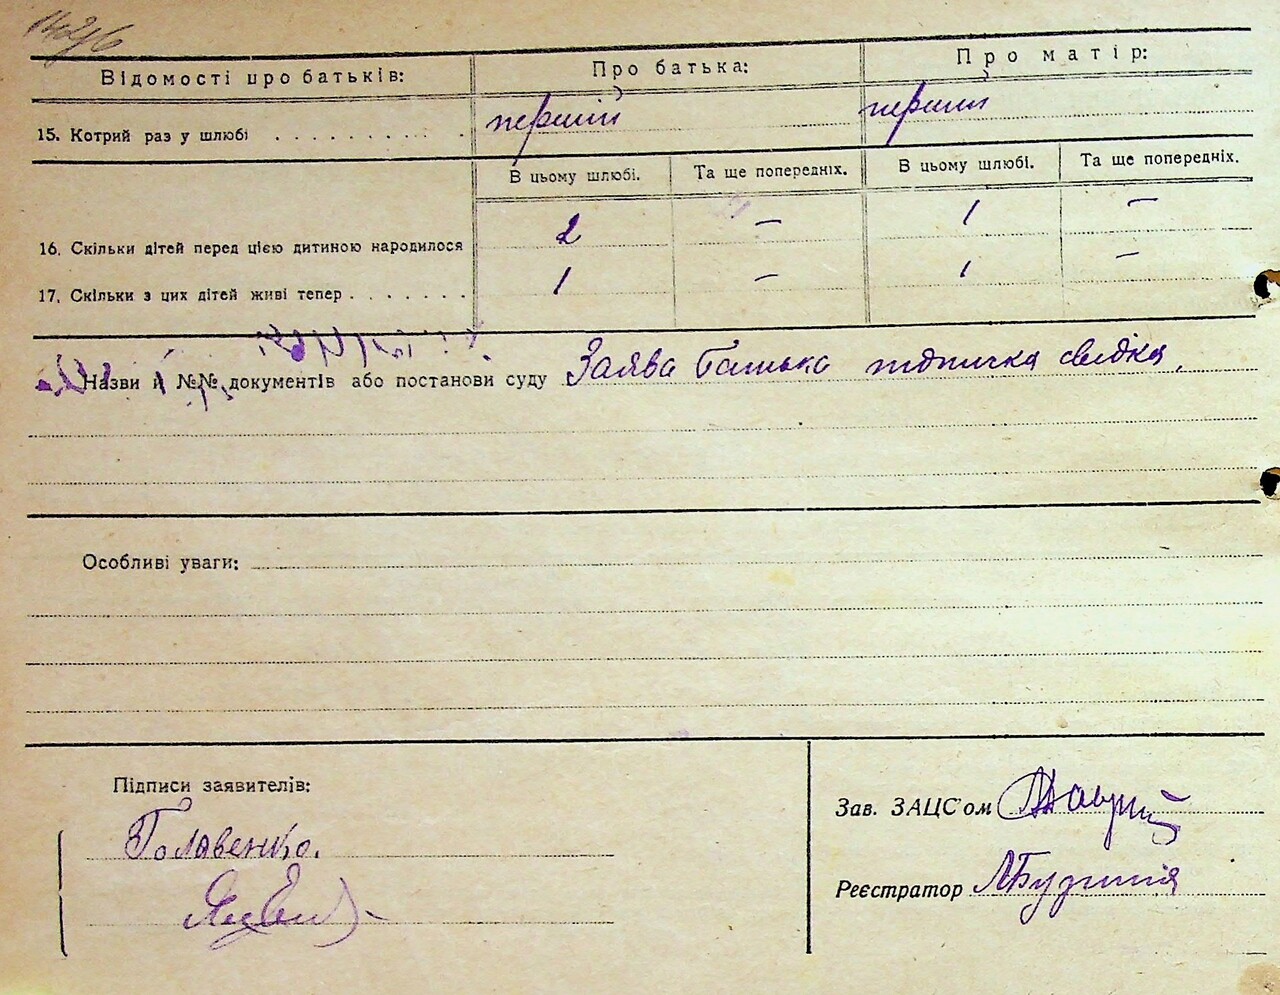 Відомості про батьків: Про батька: Про матір:
15. Котрий раз у шлюбі перший перший
В цьому шлюбі. Та ще попередніх. В цьому шлюбі. Та ще попередніх.
16. Скільки дітей перед цією дитиною народилося 2 — 1 —
17. Скільки з цих дітей живі тепер 1 — 1 —
Назви й №№ документів або постанови суду Заява Батька підписка свідка.
Особливі уваги:
Підписи заявителів:
Зав. ЗАЦС'ом
Головенко.
Реєстратор